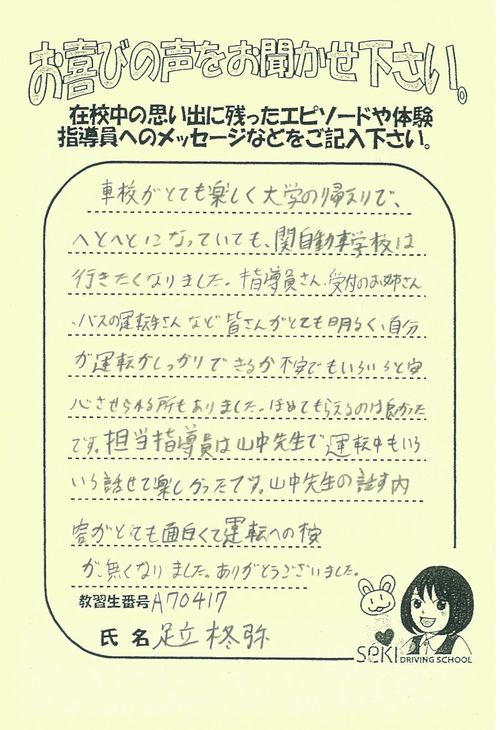 お喜びの声をお聞かせ下さい。
在校中の思い出に残ったエピソードや体験
指導員へのメッセージなどをご記入下さい。
車校がとても楽しく大学の帰りで、
へとへとになっていても、関自動車学校は
行きたくなりました。指導員さん、受付のお姉さん
、バスの運転手さんなど皆さんがとても明るく、自分
が運転がしっかりできるか不安でもいろいろと安
心させられる所もありました。ほめてもらえるのは良かった
です。担当指導員は山中先生で運転中もいろ
いろ話せて楽しかったです。山中先生の話す内
容がとても面白くて運転への
が無くなりました。ありがとうございました。
教習生番号 A70417
氏名 足立 柊弥
SEKI DRIVING SCHOOL